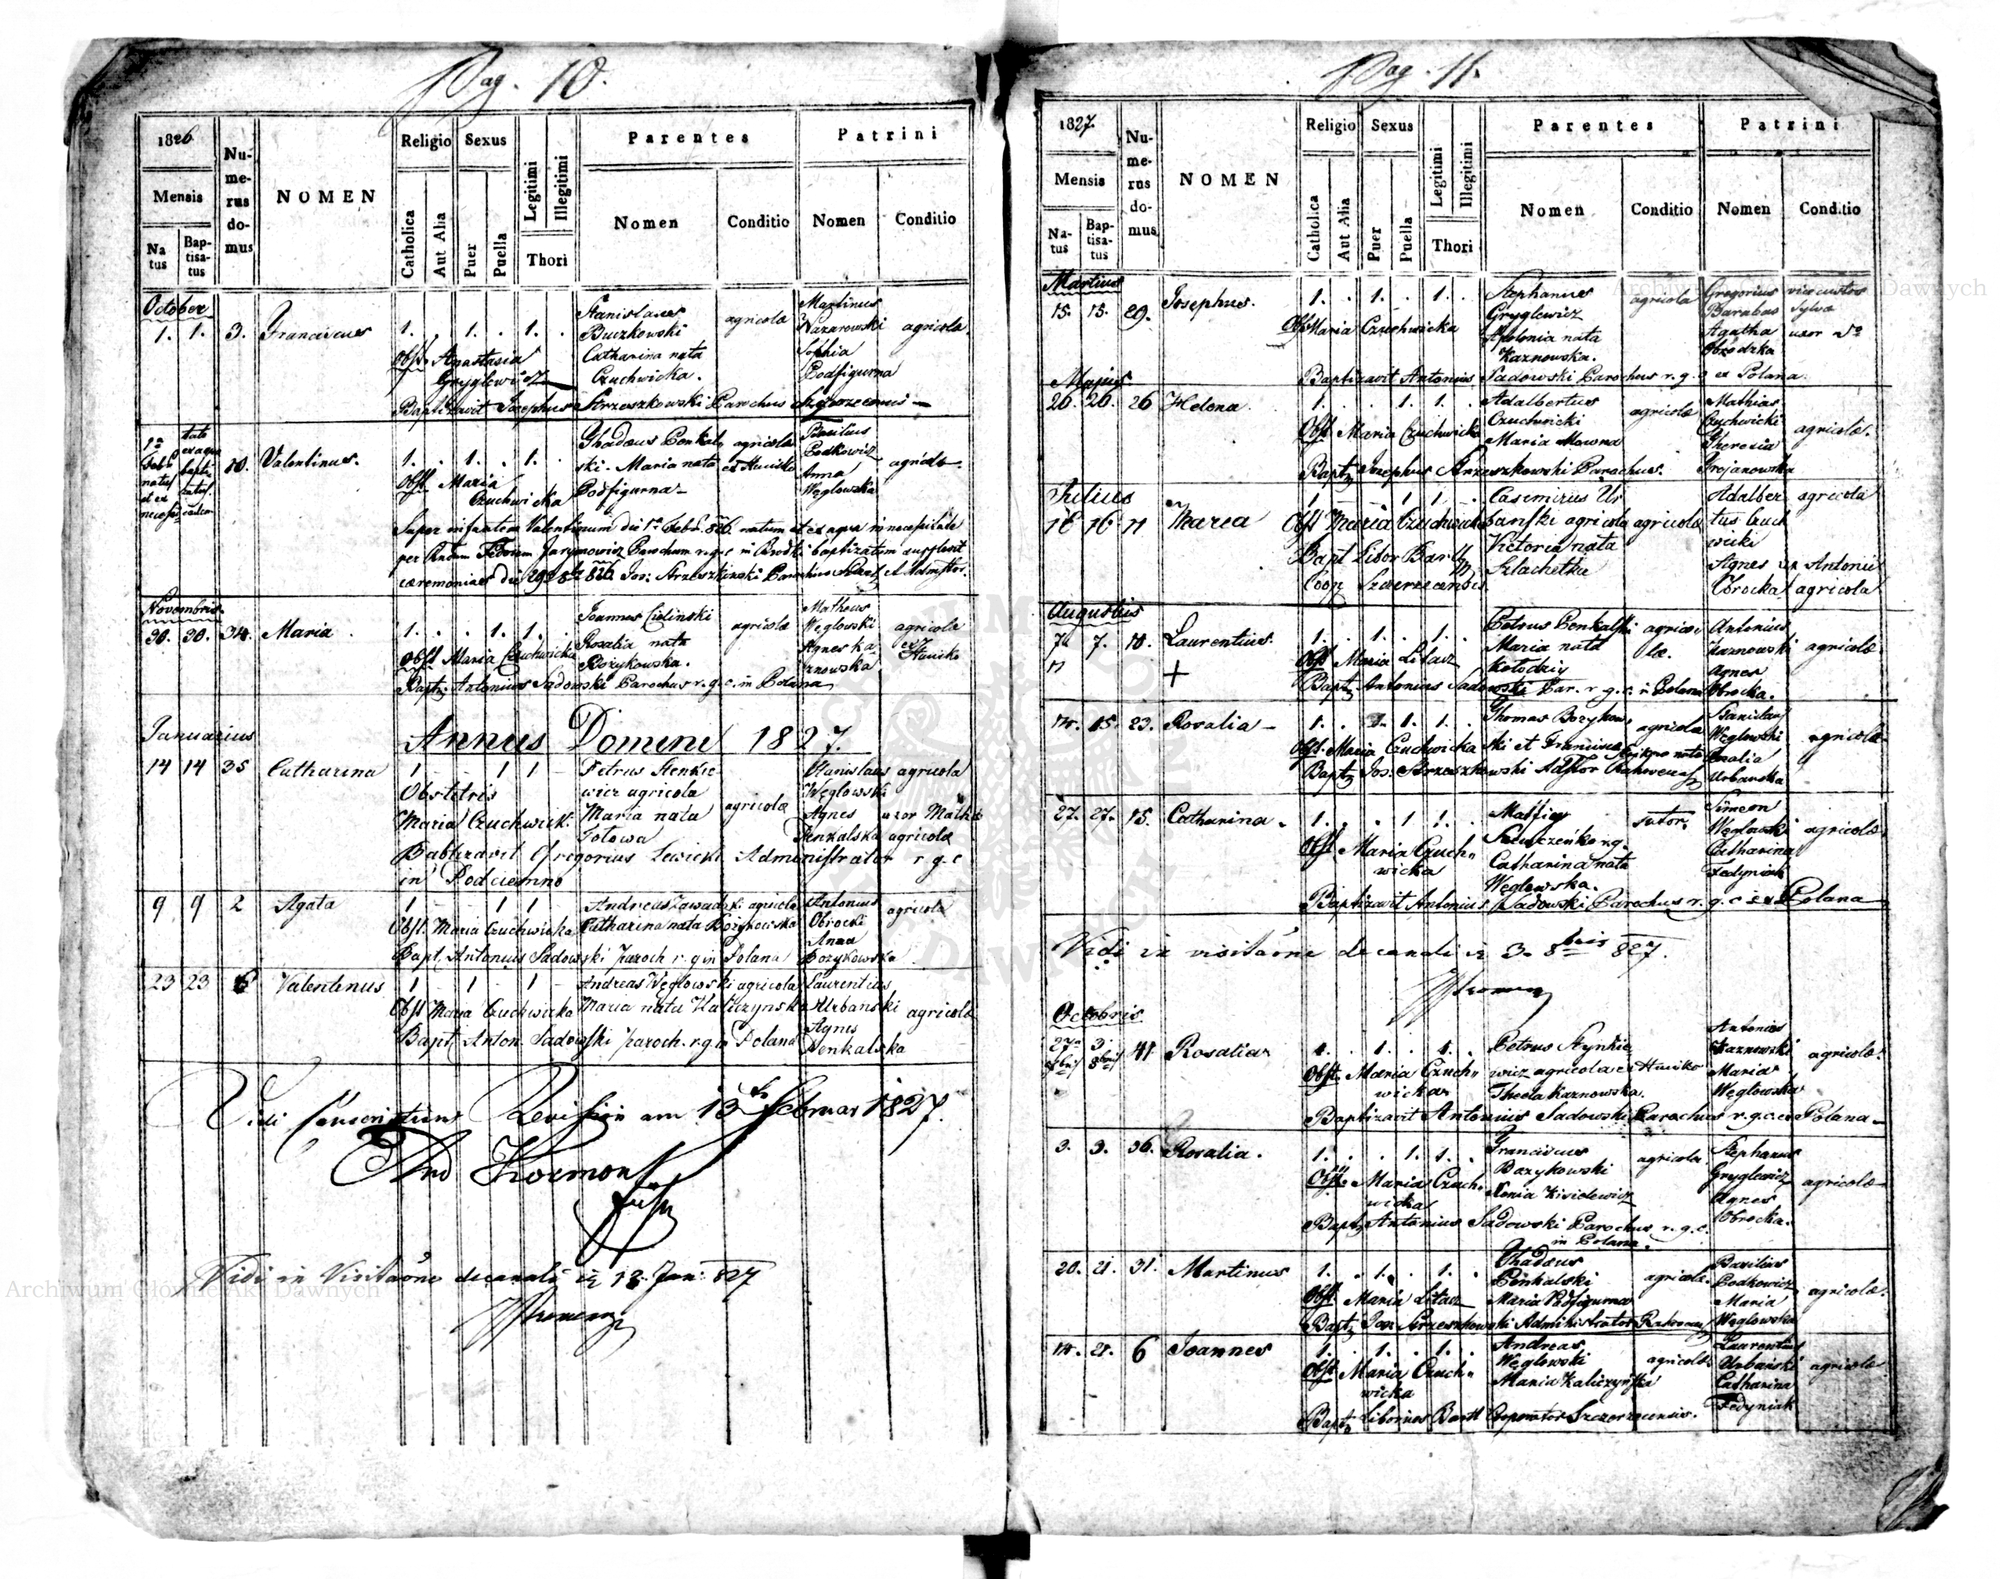 Pag. 10.
1826
Mensis
Na tus
Bap- tisa- tus
Nu- me- rus do- mus
NOMEN
Religio
Catholica
Aut Alia
Sexus
Puer
Puella
Legitimi
Illegitimi
Thori
Parentes
Nomen
Conditio
Patrini
Nomen
Conditio
October
1. 1. 3. Franciscus 1. . 1. . 1. .
Stanislaus
Buczkowski
Catharina nata
Czuchwicka.
agricolæ
Martinus
Kazanowski
Sophia
Podfigurna
agricolæ.
Obst. Agastasia
Gryglewicz
Baptizavit Josephus Strzeszkowski Parochus
10. Valentinus. 1. . 1. . 1. .
Thadæus Penkal
ski. Maria nata
Podfigurna
agricolæ
ex Huisko
Basilius
Podkowicz
Anna
Węglowska
agricolæ.
Obst. Maria
Czuchwicka
Super infantem Valentinum die 1a Febr. 826 natum et ex aqua in necessitate
per Parochum r.g.c in Brodki baptizatum supplevit
ceremonias die 29
Novembris
20. 20. 34. Maria 1. . . 1. 1. .
Joannes Cielinski
Rosalia nata
Bożykowska.
agricolæ
Matheus
Węglowski
Agnes Ka-
znowska
agricolæ
ex
Huisko
Obst Maria Czuchwicka
Bapt. Antonius Sadowski Parochus r.g.c. in Polana
Januarius
Annus Domini 1827.
14 14 35 Catharina 1 - - 1 1 -
Petrus Stenkie
wicz agricola
Maria nata
Totowa
agricolæ
Stanislaus
Węglowski
Agnes
Penkalska
agricola
uxor Mathæi
agricolæ
Obstetris
Maria Czuchwick.
Babtizavit Gregorius Lewicki Administrator r.g.c
in Podciemno
9 9 2 Agata 1 - - 1 1
Andreas Zawadzki agricola
Catharina nata Bożykowska
Antonius
Obrocki
Anna
Bożykowska
agricolæ
Obst. Maria Czuchwicka
Bapt. Antonius Sadowski paroch r.g in Polana
23 23 6 Valentinus 1 - 1 - 1 -
Andreas Węglowski agricola
Maria nata Kaliczynska
Laurentius
Urbanski
Agnes
Penkalska
agricolæ
Obst Maria Czuchwicka
Bapt. Anton. Sadowski paroch. r.g in Polana
Vidi Conscriptions Revision am 13 Februar 1827.
Vidi in Visitatione decanali 18. Jan. 827
Pag. 11.
1827.
Mensis
Na- tus
Bap- tisa- tus
Nu- me- rus do- mus
NOMEN
Religio
Catholica
Aut Alia
Sexus
Puer
Puella
Legitimi
Illegitimi
Thori
Parentes
Nomen
Conditio
Patrini
Nomen
Conditio
Martius
15. 15. 29. Josephus. 1. . 1. . 1. .
Stephanus
Gryglewicz
Apolonia nata
Kaznowska.
agricolæ
Gregorius
Barabas
Agatha
Obrodzka
vicecustos
Sylvæ
uxor
Obst Maria Czuchwicka
Baptizavit Antonius Sadowski Parochus r.g.c ex Polana.
Majus
26. 26. 26 Helena. 1. . . 1. 1. .
Adalbertus
Czuchwicki
Maria
agricolæ
Mathias
Czuchwicki
Theresia
Trojanowska
agricolæ.
Obst. Maria Czuchwicka
Bapt. Josephus Strzeszkowski Parochus.
Julius
16 16 11 Maria 1 - - 1 1 .
Casimirus Ur
banski agricola
Victoria nata
Szlachetka
agricolæ
Adalber
tus Czuch
wicki
Agnes
Obrocka
agricola
ux Antonii
agricola
Obst Maria Czuchwicka
Bapt Libor Bartl
Coop Szczerzecensis
Augustus
7a 7. 10. Laurentius. 1. . 1. . 1. .
+
Petrus Penkalski
Maria nata
Kołodziy
agrico-
læ.
Antonius
Kaznowski
Agnes
Obrocka.
agricolæ
Obst. Maria Litacz
Bapt. Antonius Sadowski Par. r.g.c. in Polana
14. 15. 23. Rosalia 1. . . 1. 1. .
Thomas Bozykow
ski et Francisca nata
agricolæ
Stanislaus
Węglowski
Rosalia
Urbanska
agricolæ
Obst. Maria Czuchwicka
Bapt. Jos: Strzeszkowski
27. 27. 15. Catharina. 1. . . 1 1. .
Catharina nata
Węglowska.
sutor.
Simeon
Węglowski
Catharina
Fedyniak
agricolæ
Obst Maria Czuch-
wicka
Baptizavit Antonius Sadowski Parochus r.g.c ex Polana
Vidi in visitatione decanali 3. 8bris 827.
Octobris
27. 3. 41. Rosalia 1. . 1. . 1. .
Petrus Stynkie
wicz agricola ex Huisko
Thecla Kaznowska.
Antonius
Kaznowski
Maria
Węglowska
agricolæ.
Obst. Maria Czuch-
wicka
Baptizavit Antonius Sadowski Parochus r.g.c. ex Polana
3. 3. 36. Rosalia. 1. . . 1. 1. .
Franciscus
Bozykowski
Xenia Kisielewicz
agricolæ.
Stephanus
Gryglewicz
Agnes
Obrocka.
agricolæ
Obst. Maria Czuch-
wicka
Bapt. Antonius Sadowski Parochus r.g.c.
in Polana.
20. 21. 31. Martinus 1. . 1. . 1. .
Thadæus
Penkalski
Maria Podfigurna
agricolæ.
Basilius
Podkowicz
Maria
Węglowska
agricolæ.
Obst. Maria Litacz
Bapt. Jos Strzeszkowski Administrator
14. 21. 6 Joannes 1. . 1. . 1. .
Andreas
Węglowski
Maria Kaliczyńska
agricolæ
Laurentius
Urbański
Catharina
Fedyniak
agricolæ
Obst. Maria Czuch-
wicka
Bapt. Liborius Bartl Cooperator Szczerzecensis.
Archiwum Główne Akt Dawnych